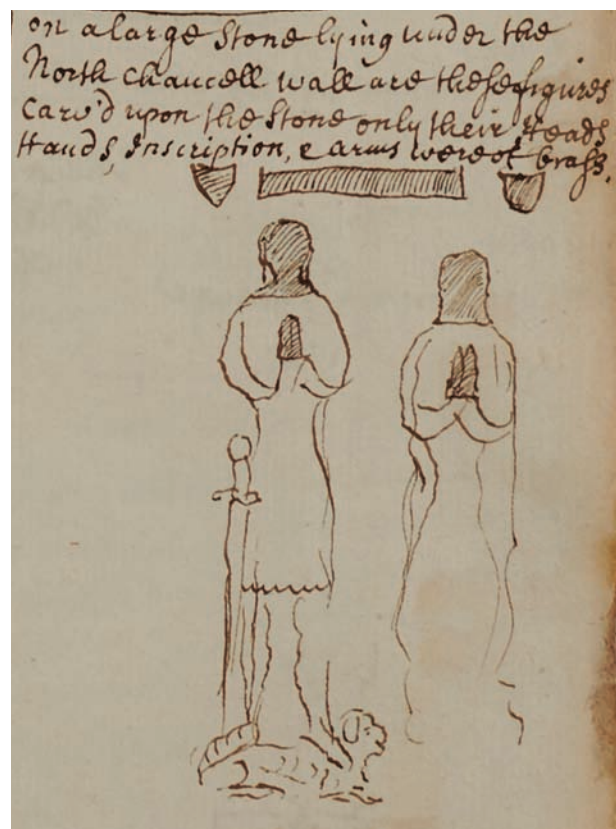 on a large Stone lying under the
North Chancell wall are these figures
Carv'd upon the Stone only their Heads
Hands, Inscription, & arms were of brass.